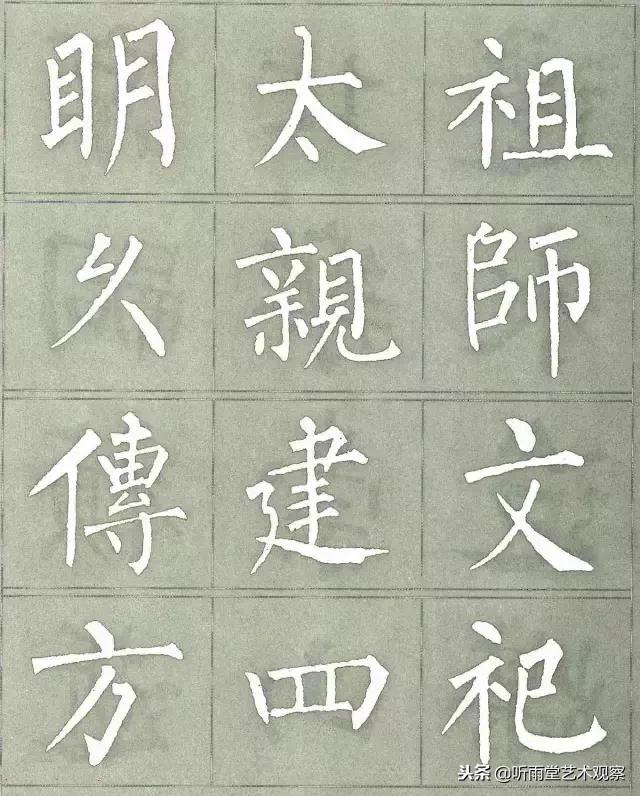 眀太祖
久親師
傳建文
方四祀
头条 @听雨堂艺术观察